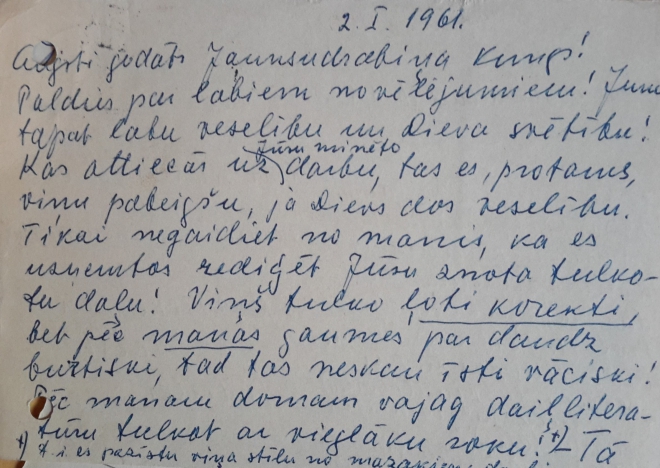 2. I. 1961.
Augsti godāts Jaunsudrabiņa kungs!
Paldies par labiem novēlējumiem! Jums
tāpat labu veselību un Dieva svētību!
Jūsu minēto
Kas attiecas uz darbu, tas es, protams,
viņu pabeigšu, ja Dievs dos veselību.
Tikai negaidiet no manis, ka es
uzņemtos rediģēt Jūsu znota tulko-
tu daļu! Viņš tulko ļoti korekti,
bet pēc manas gaumes par daudz
burtiski, tad tas neskan īsti vāciski!
Pēc manam domam vajag daiļlitera-
tūru tulkot ar vieglāku roku! +) Tā
+) t. i. es pazīstu viņa stilu no